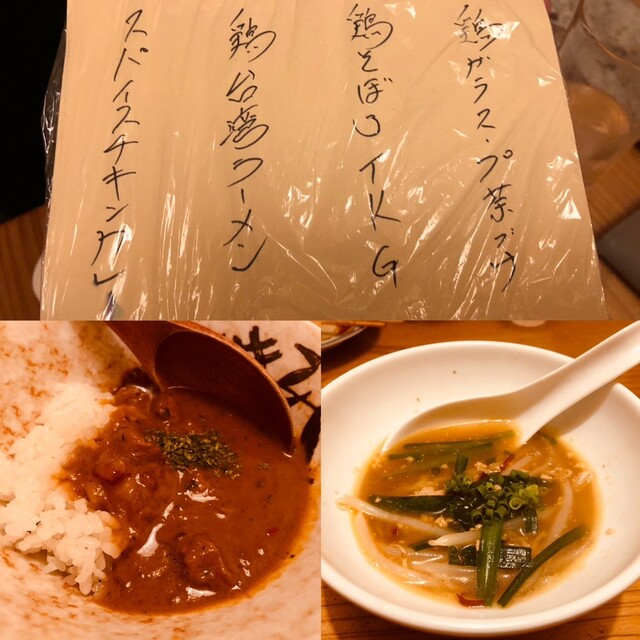 鶏ガラスープ茶づけ
鶏そぼろTKG
鶏台湾ラーメン
スパイスチキンカレー